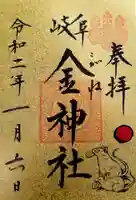 奉拝
岐阜
こがね
金神社
令和二年一月六日